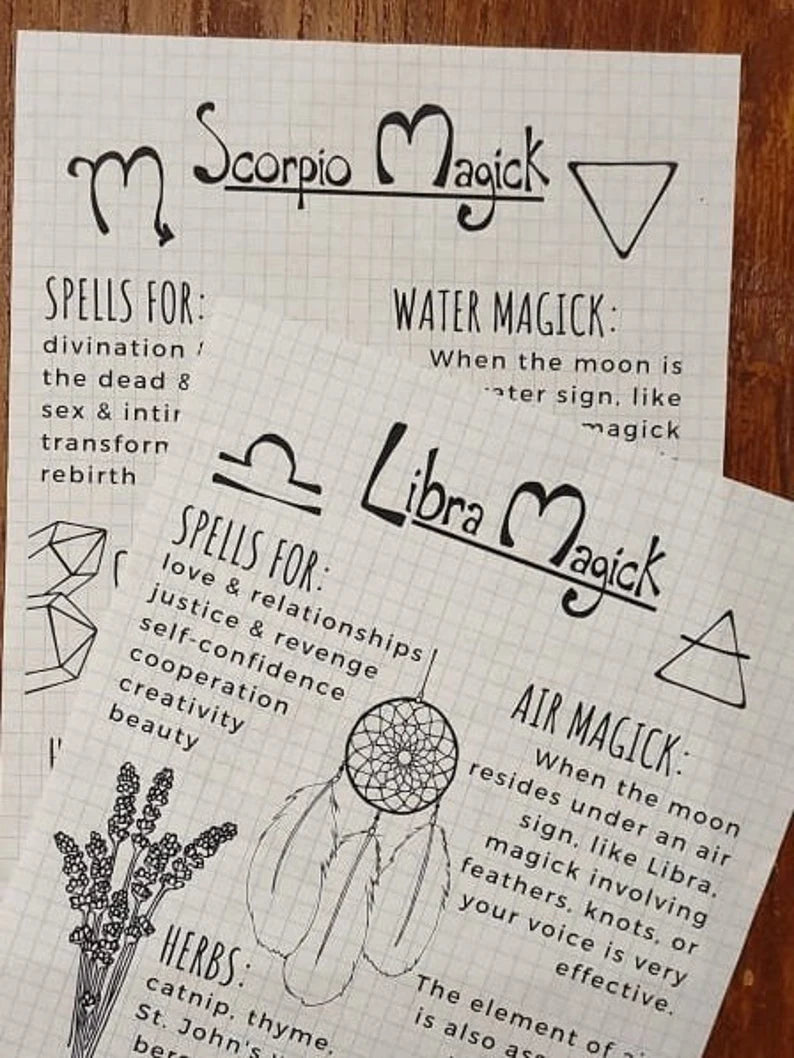 Scorpio Magick
SPELLS FOR:
divination
the dead &
sex &
rebirth
WATER MAGICK:
When the moon is
sign, like
magick
Libra Magick
SPELLS FOR:
love & relationships
justice & revenge
self-confidence
cooperation
creativity
beauty
AIR MAGICK:
When the moon
resides under an air
sign, like Libra,
magick involving
feathers, knots, or
your voice is very
effective.
HERBS:
catnip, thyme,
St. John's
The element of
is also